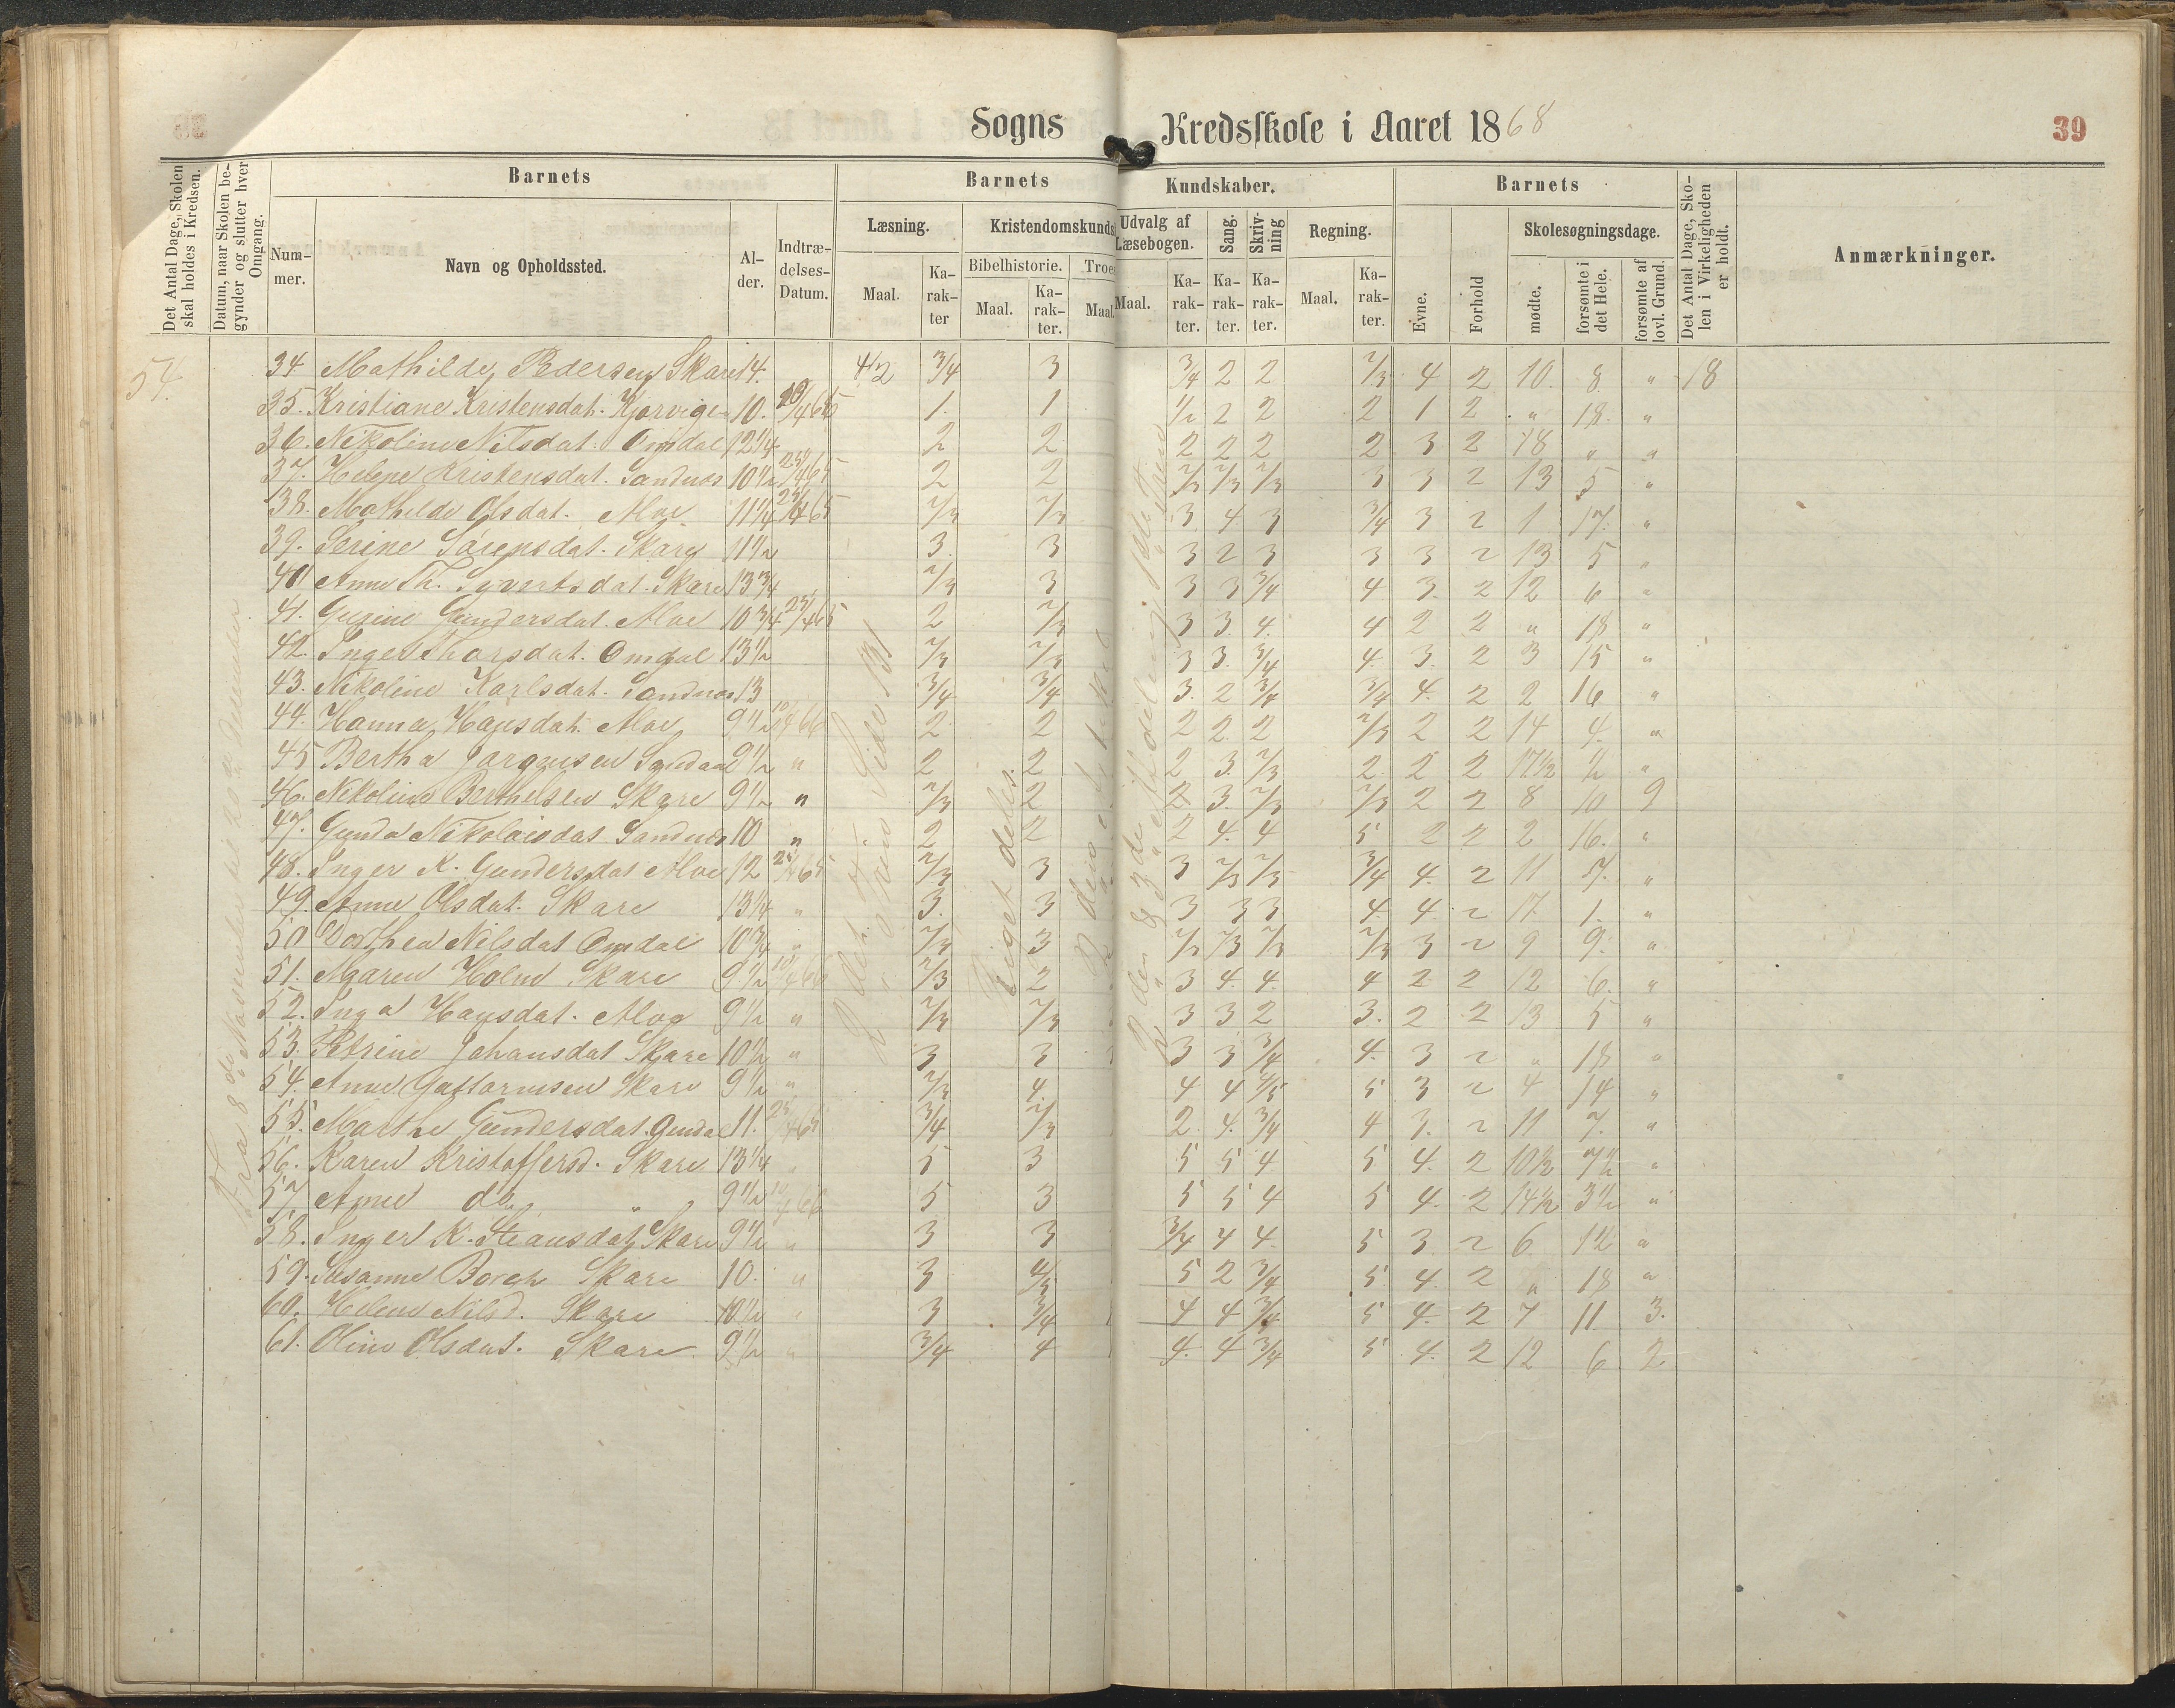 Sogns Kredsskole i Aaret 1868
39
Det Antal Dage, Skolen skal holdes i Kredsen.
Datum, naar Skolen begynder og slutter hver Omgang.
Barnets
Nummer.
Navn og Opholdssted.
Alder.
Indtrædelses-Datum.
Barnets Kundskaber.
Læsning.
Maal.
Karakter
Kristendomskunds
Bibelhistorie.
Maal.
Karakter.
Troe
Maal.
Udvalg af Læsebogen.
Maal.
Karakter.
Sang.
Karakter.
Skrivning
Karakter.
Regning.
Maal.
Karakter.
Barnets
Evne.
Forhold
Skolesøgningsdage.
mødte.
forsømte i det Hele.
forsømte af lovl. Grund.
Det Antal Dage, Skolen i Virkeligheden er holdt.
Anmærkninger.
54.
34 Mathilde Pedersen Skare 14. 4/2 3/4 3 3/4 2 2 2/3 4 2 10. 8 " 18
35. Kristiane Kristensdat. 10. 1. 1 1/2 2 2 2 1 2 " 18. "
36. Nikoline Nilsdat. Omdal 12 1/4 2 2 2 2 2 2 3 2 18 " "
37. Helene Kristensdat. Sandnæs 10 1/2 25/4 65 2 2 2/3 2/3 2/3 3 3 2 13 5 "
38. Mathilde Olsdat. Moe 11 1/4 25/4 65 2/3 2/3 3 4 3 3/4 3 2 1 17. "
39. Serine Sørensdat. Skare 11 1/2 3. 3 3 2 3 3 3 2 13 5 "
40 Anne Th. Syvertsdat. Skare 13 3/4 2/3 3 3 3 3/4 4 3. 2 12 6 "
41. Gusine Gundersdat. Moe 10 3/4 25/4 65 2 2/3 3 3. 4. 4 2 2 " 18 "
42. Inger Thorsdat. Omdal 13 1/2 2/3 2/3 3 3. 3/4 4. 3. 2 3 15 "
43. Nikoline Karlsdat. Sandnæs 13 3/4 3/4 3. 2 3/4 3/4 4. 2 2 16 "
44. Hanna Hansdat. Moe 9 1/2 10/4 66 2 2 2 2 2 2/3 2 2 14 4. "
45 Bertha Jørgensen 9 1/2 " 2 2 2 3. 2/3 2. 2 2 17 1/2 1/2 "
46. Nikoline Berthelsen Skare 9 1/2 " 2/3 2 2 3. 2/3 2/3 2 2 8 10 9
47. Gunda Nikolaisdat. Sandnæs 10 " 2 2 2 4. 4 5 2 2 2 16. "
48. Inger K. Gundersdat Moe 12 25/4 65 2/3 3 3 2/3 2/3 3/4 4. 2 11 7. "
49. Anne Olsdat. Skare 13 1/4 " 3. 3 3 3 3 4. 4. 2 17. 1. "
50 Dorthea Nilsdat Omdal 10 3/4 " 2/3 3 2/3 2/3 2/3 2/3 3 2 9 9. "
51. Maren Holm Skare 9 1/2 10/4 66 2/3 2 3 4. 4. 4 2 2 12 6. "
52. Inga Hansdat. Moe 9 1/2 " 2/3 2/3 3 3 2 3. 2 2 13 5 "
53. Petrine Johansdat Skare 10 1/2 " 3 3 3 3 3/4 4. 3 2 " 18 "
54. Anne Guttormsen Skare 9 1/2 " 2/3 4 4 4 4/5 5 3 2 4 14 "
55. Marthe Gundersdat. Omdal 11. 25/4 65 3/4 2/3 2. 4. 3/4 4 3. 2 11 7. "
56. Karen Kristoffersd. Skare 13 1/4 " 5 3 5 5 4 5 4. 2 10 1/2 7 1/2 "
57. Anne do " 9 1/2 10/4 66 5 3 5 5 4 5 4. 2 14 1/2 3 1/2 "
58. Inger K. Skare 9 1/2 " 3 3 3/4 4 4. 5 3 2 6. 12 "
59. Susanne Borch Skare 10. " 3 4/5 5 2 3/4 5. 4. 2 " 18 "
60. Helene Nilsd. Skare 10 1/2 " 3 3/4 4 4 3/4 5 4. 2 7 11 3.
61. Oline Olsdat. Skare 9 1/2 " 3/4 4 4. 4 3/4 5 4. 2 12 6 2.
Fra 8de November til
Side 131
Eiget deles.
2den & 3de Afdeling